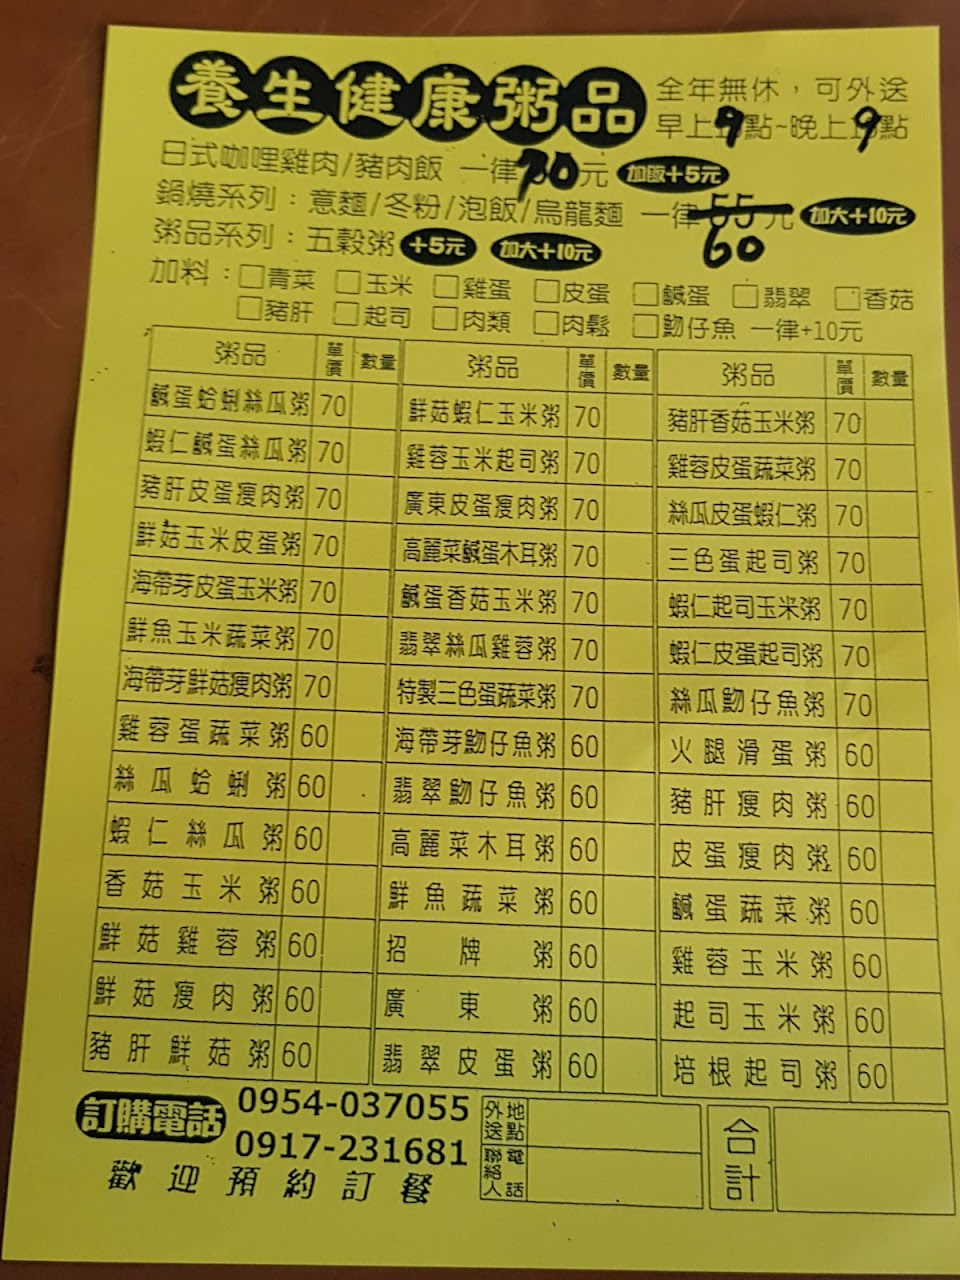 養生健康粥品
全年無休,可外送
早上9點~晚上9點
日式咖哩雞肉/豬肉飯 一律70元 加飯+5元
鍋燒系列:意麵/冬粉/泡飯/烏龍麵 一律55元 加大+10元
60
粥品系列:五穀粥 +5元 加大+10元
加料:□青菜 □玉米 □雞蛋 □皮蛋 □鹹蛋 □翡翠 □香菇
□豬肝 □起司 □肉類 □肉鬆 □魩仔魚 一律+10元
粥品 單價 數量 粥品 單價 數量 粥品 單價 數量
鹹蛋蛤蜊絲瓜粥 70 鮮菇蝦仁玉米粥 70 豬肝香菇玉米粥 70
蝦仁鹹蛋絲瓜粥 70 雞蓉玉米起司粥 70 雞蓉皮蛋蔬菜粥 70
豬肝皮蛋瘦肉粥 70 廣東皮蛋瘦肉粥 70 絲瓜皮蛋蝦仁粥 70
鮮菇玉米皮蛋粥 70 高麗菜鹹蛋木耳粥 70 三色蛋起司粥 70
海帶芽皮蛋玉米粥 70 鹹蛋香菇玉米粥 70 蝦仁起司玉米粥 70
鮮魚玉米蔬菜粥 70 翡翠絲瓜雞蓉粥 70 蝦仁皮蛋起司粥 70
海帶芽鮮菇瘦肉粥 70 特製三色蛋蔬菜粥 70 絲瓜魩仔魚粥 70
雞蓉蛋蔬菜粥 60 海帶芽魩仔魚粥 60 火腿滑蛋粥 60
絲瓜蛤蜊粥 60 翡翠魩仔魚粥 60 豬肝瘦肉粥 60
蝦仁絲瓜粥 60 高麗菜木耳粥 60 皮蛋瘦肉粥 60
香菇玉米粥 60 鮮魚蔬菜粥 60 鹹蛋蔬菜粥 60
鮮菇雞蓉粥 60 招牌粥 60 雞蓉玉米粥 60
鮮菇瘦肉粥 60 廣東粥 60 起司玉米粥 60
豬肝鮮菇粥 60 翡翠皮蛋粥 60 培根起司粥 60
訂購電話 0954-037055
0917-231681
歡迎預約訂餐
外送地點
聯絡人電話
合計